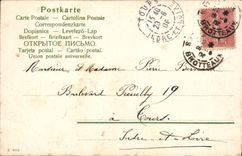 Postkarte
Carte Postale - Cartolina Postale
Correspondenzkarte
Dopisnice - Levelező-Lap
Brefkort - Briefkaart - Brevkort
ОТКРЫТОЕ ПИСЬМО.
Tarjeta postal - Cartão postal
Union postale universelle.
BROTTEAUX
Monsieur et Madame Pierre
Boulevard Preuilly 19
à Tours.
Indre-et-Loire